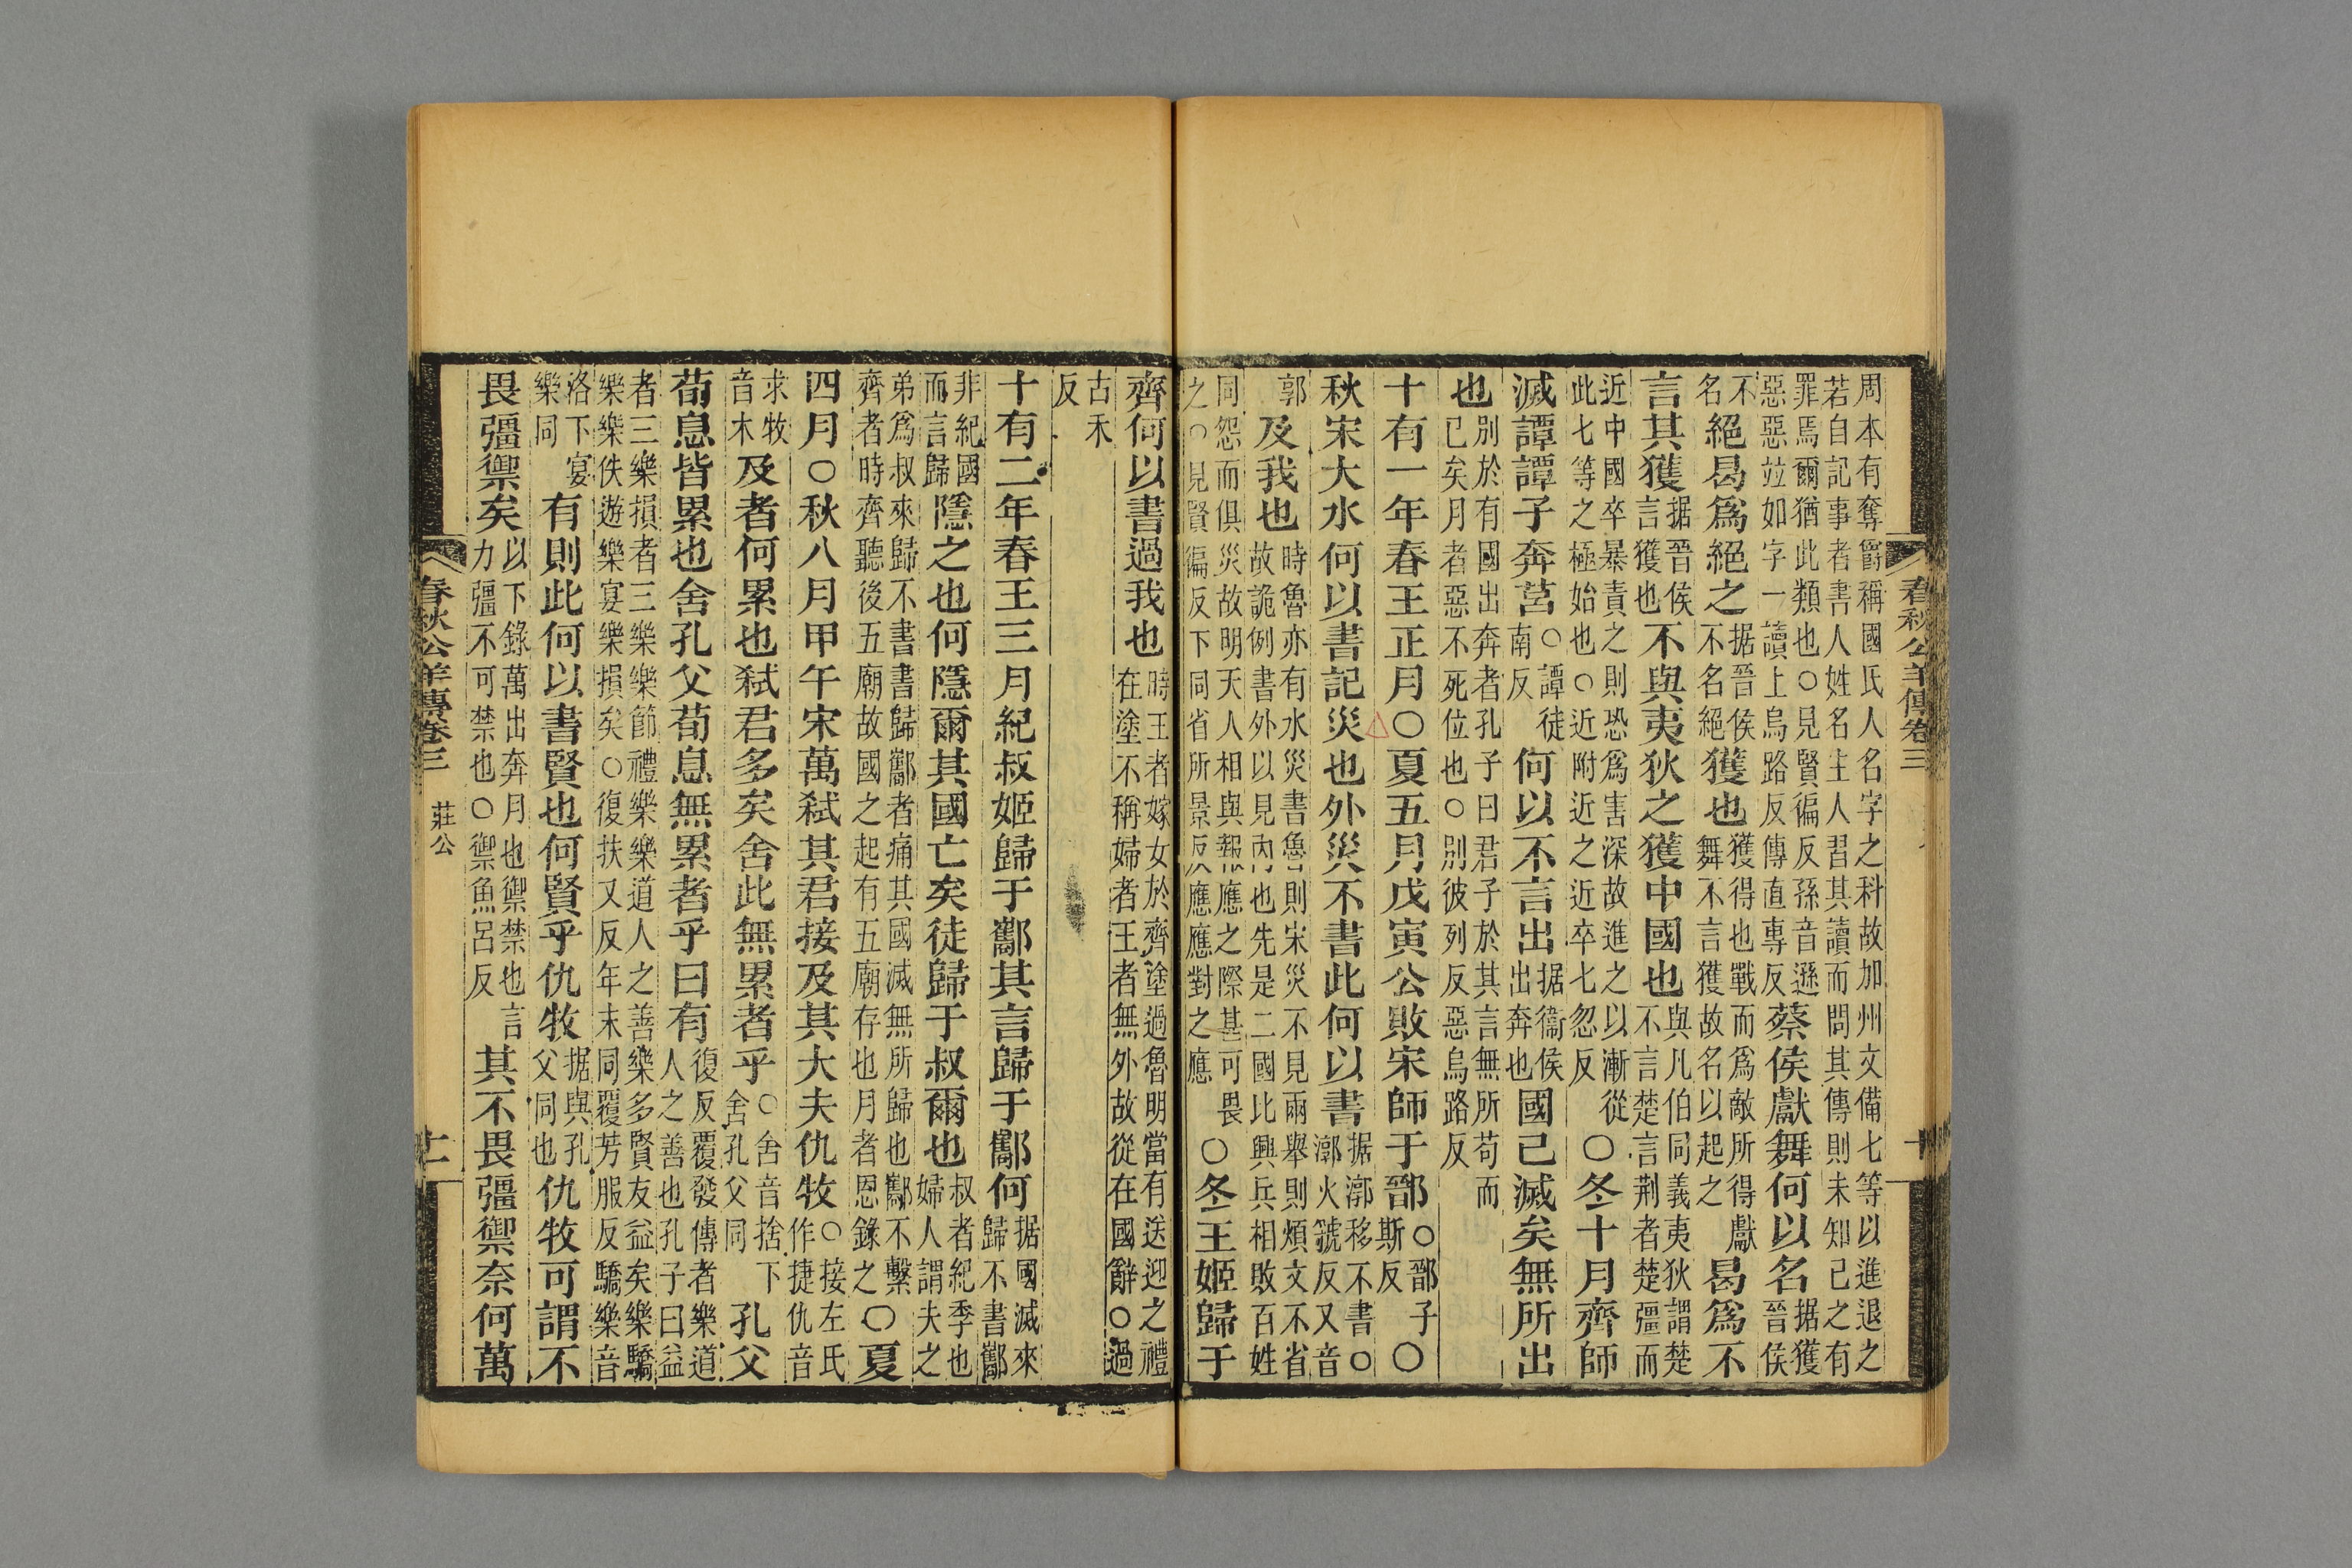 春秋公羊傳卷三
十
周本有奪爵稱國氏人名字之科故加州文備七等以進退之
若自記事者書人姓名主人習其讀而問其傳則未知己之有
罪焉爾猶此類也○見賢徧反孫音遜
惡惡竝如字一讀上烏路反傳直專反
蔡侯獻舞何以名
据獲
晉侯
不
名
絕曷爲絕之
据晉侯
不名絕
獲也
獲得也戰而爲敵所得獻
舞不言獲故名以起之
曷爲不
言其獲
据晉侯
言獲也
不與夷狄之獲中國也
與凡伯同義夷狄謂楚
不言楚言荆者楚彊而
近中國卒暴責之則恐爲害深故進之以漸從
此七等之極始也○近附近之近卒七忽反
○冬十月齊師
滅譚譚子奔莒
○譚徒
南反
何以不言出
据衞侯
出奔也
國已滅矣無所出
也
別於有國出奔者孔子曰君子於其言無所苟而
已矣月者惡不死位也○別彼列反惡烏路反
十有一年春王正月○夏五月戊寅公敗宋師于鄑
○鄑子
斯反
○
秋宋大水何以書記災也外災不書此何以書
据漷移不書○
漷火虢反又音
郭
及我也
時魯亦有水災書魯則宋災不見兩舉則煩文不省
故詭例書外以見內也先是二國比興兵相敗百姓
同怨而俱災故明天人相與報應之際甚可畏
之○見賢徧反下同省所景反應應對之應
○冬王姬歸于
齊何以書過我也
時王者嫁女於齊塗過魯明當有送迎之禮
在塗不稱婦者王者無外故從在國辭○過
古禾
反
十有二年春王三月紀叔姬歸于酅其言歸于酅何
据國滅來
歸不書酅
非紀國
而言歸
隱之也何隱爾其國亡矣徒歸于叔爾也
叔者紀季也
婦人謂夫之
弟爲叔來歸不書書歸酅者痛其國滅無所歸也酅不繫
齊者時齊聽後五廟故國之起有五廟存也月者恩錄之
○夏
四月○秋八月甲午宋萬弑其君接及其大夫仇牧
○接左氏
作捷仇音
求牧
音木
及者何累也弑君多矣舍此無累者乎
○舍音捨下
舍孔父同
孔父
荀息皆累也舍孔父荀息無累者乎曰有
復反覆發傳者樂道
人之善也孔子曰益
者三樂損者三樂樂節禮樂樂道人之善樂多賢友益矣樂驕
樂樂佚遊樂宴樂損矣○復扶又反年末同覆芳服反驕樂音
洛下宴
樂同
有則此何以書賢也何賢乎仇牧
据與孔
父同也
仇牧可謂不
畏彊禦矣
以下錄萬出奔月也禦禁也言
力彊不可禁也○禦魚呂反
其不畏彊禦奈何萬
春秋公羊傳卷三
莊公
十一